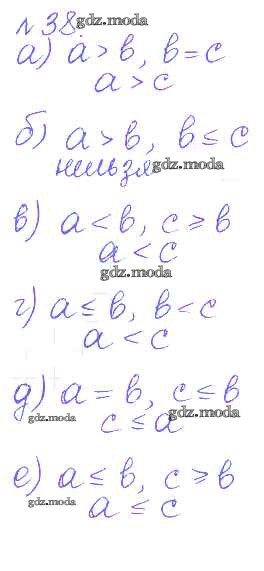 № 38. gdz.moda
а) a > b, b = c
a > c
б) a > b, b ≤ c
нельзя gdz.moda
в) a < b, c ≥ b
a < c
gdz.moda
г) a ≤ b, b < c
a < c
д) a = b, c ≤ b
gdz.moda c ≤ a gdz.moda
е) a ≤ b, c ≥ b
gdz.moda a ≤ c